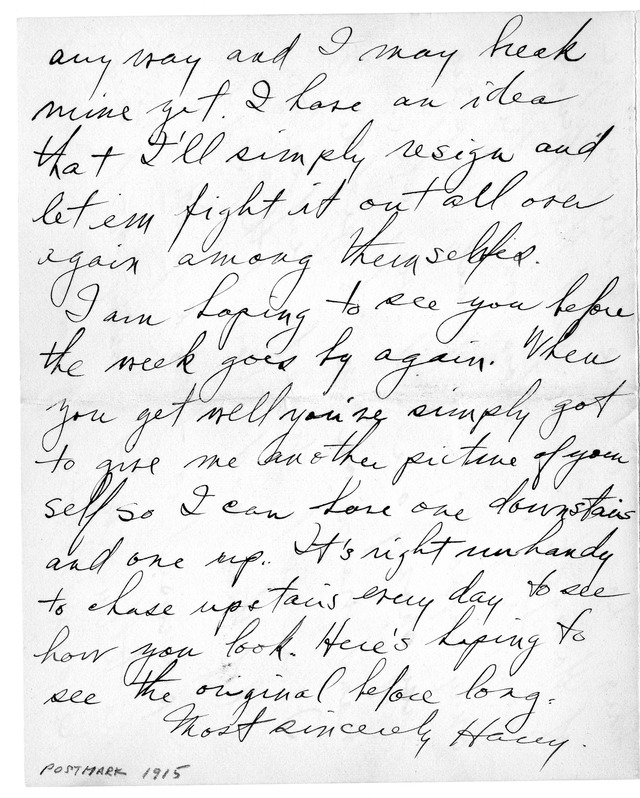 any way and I may break
mine yet. I have an idea
that I'll simply resign and
let em fight it out all over
again among themselves.
I am hoping to see you before
the week goes by again. When
you get well you've simply got
to give me another picture of your
self so I can have one downstairs
and one up. It's right unhandy
to chase upstairs every day to see
how you look. Here's hoping to
see the original before long.
Most sincerely Harry.
POSTMARK 1915